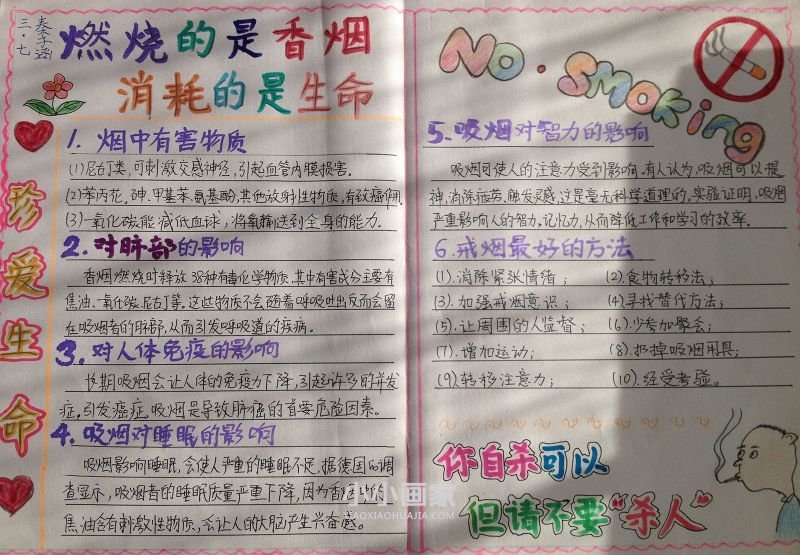 三·七
燃烧的是香烟
消耗的是生命
珍爱生命
1. 烟中有害物质
(1)尼古丁类,可刺激交感神经,引起血管内膜损害。
(2)苯丙花、砷、甲基苯、氨基酚,其他放射性物质,有致癌作用
(3)一氧化碳能减低血球,将氧输送到全身的能力。
2. 对肺部的影响
香烟燃烧时释放38种有毒化学物质,其中有害成分主要有
焦油、一氧化碳、尼古丁等。这些物质不会随着呼吸吐出反而会留
在吸烟者的肺部,从而引发呼吸道的疾病。
3、对人体免疫的影响
长期吸烟会让人体的免疫力下降,引起许多的并发
症,引发癌症。吸烟是导致肺癌的首要危险因素。
4、吸烟对睡眠的影响
吸烟影响睡眠,会使人严重的睡眠不足,据德国的调
查显示,吸烟者的睡眠质量严重下降,因为香烟
焦油含有刺激性物质,会让人的大脑产生兴奋感。
NO·SMOKing
5. 吸烟对智力的影响
吸烟可使人的注意力受到影响,有人认为,吸烟可以提
神、消除疲劳、触发灵感,这是毫无科学道理的,实验证明,吸烟
严重影响人的智力,记忆力,从而降低工作和学习的效率。
6. 戒烟最好的方法
(1).消除紧张情绪; (2).食物转移法;
(3).加强戒烟意识; (4).寻找替代方法;
(5).让周围的人监督; (6).少参加聚会;
(7).增加运动; (8).扔掉吸烟用具;
(9).转移注意力; (10).经受考验。
你自杀可以
但请不要“杀人”
小小画家
XIAOXIAOHUAJIA.COM